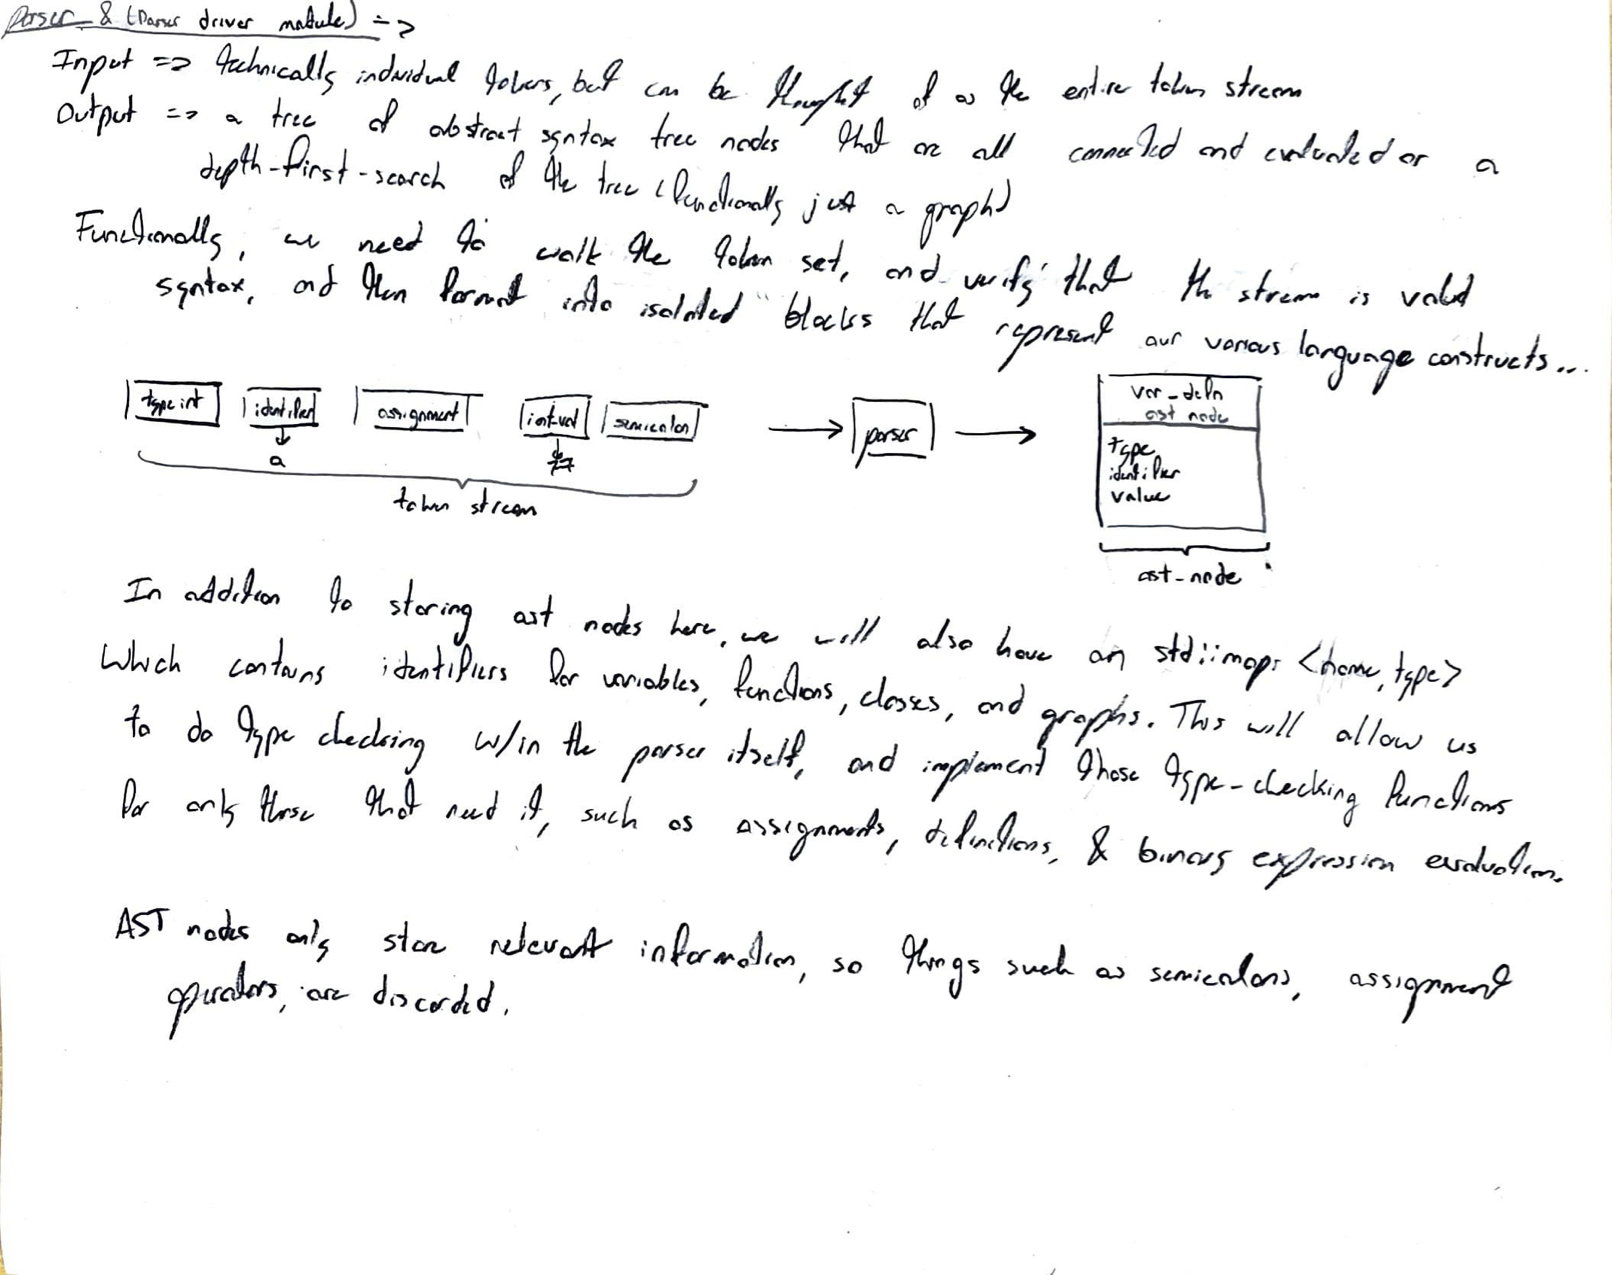 Parser & (Parser driver module) =>
Input => technically individual tokens, but can be thought of as the entire token stream
Output => a tree of abstract syntax tree nodes that are all connected and evaluated as a
depth-first-search of the tree (functionally just a graph)
Functionally, we need to walk the token set, and verify that the stream is valid
syntax, and then format into isolated blocks that represent our various language constructs...
type int identifier assignment int-val semicolon parser var_defn
ast node
a
type
identifier
value
token stream
ast-node
In addition to storing ast nodes here, we will also have an std::map: <name, type>
Which contains identifiers for variables, functions, classes, and graphs. This will allow us
to do type checking w/in the parser itself, and implement those type-checking functions
for only those that need it, such as assignments, definitions, & binary expression evaluation.
AST nodes only store relevant information, so things such as semicolons, assignment
operators, are discarded.